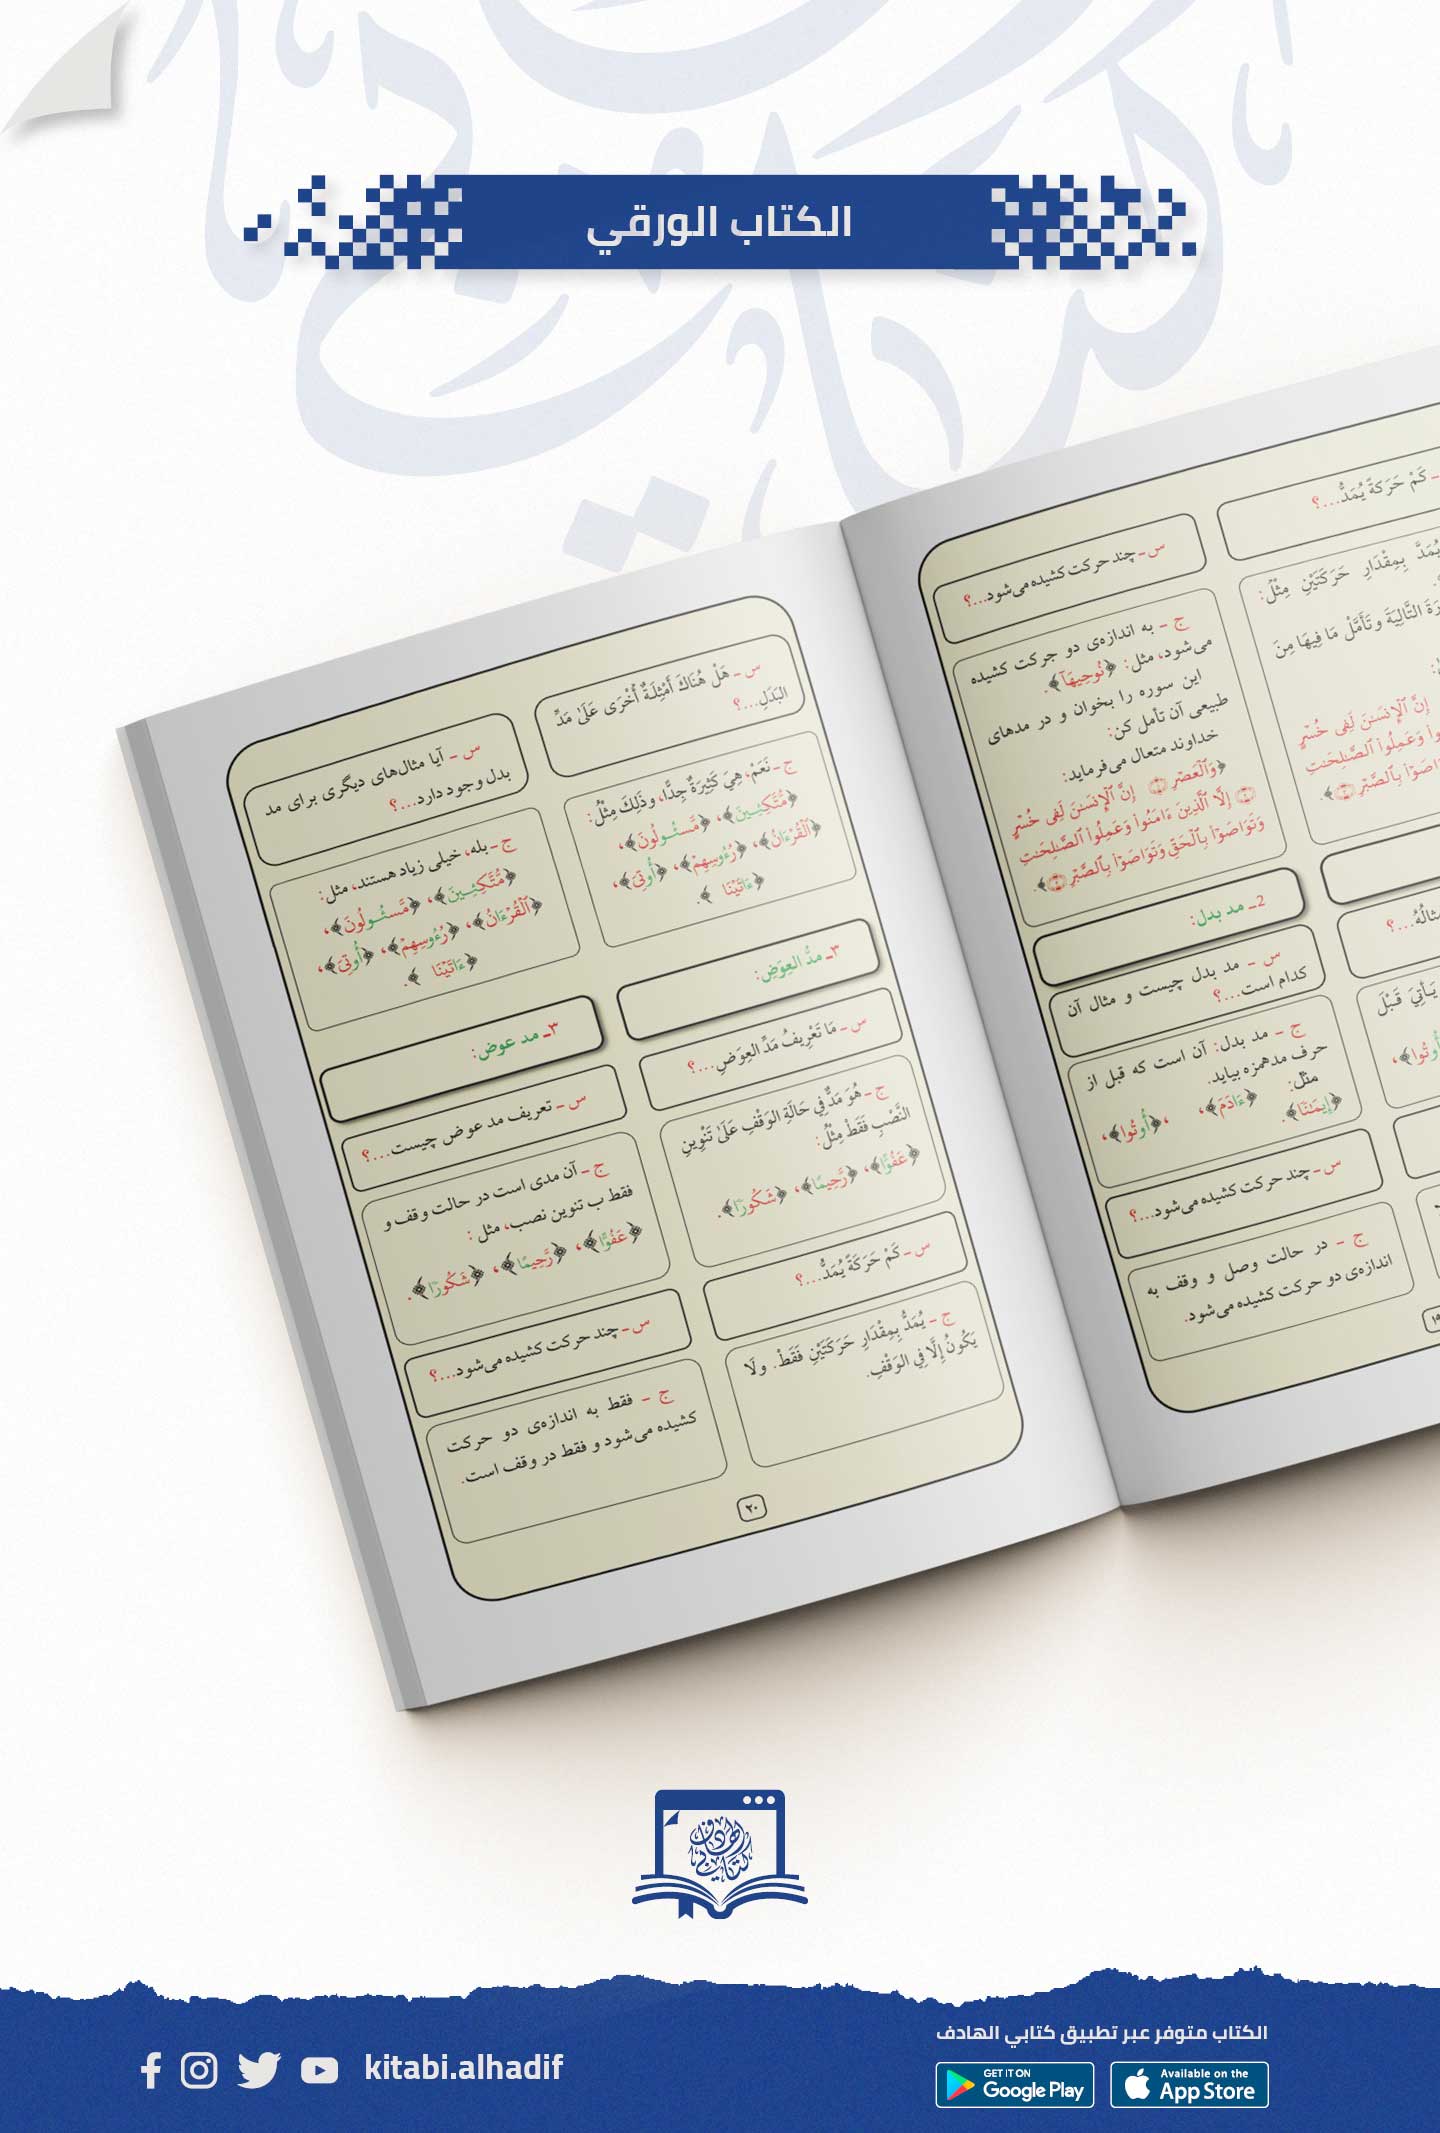 الكتاب الورقي
كَمْ حَرَكةً يُمَدُّ...؟
يُمَدَّ بِمِقْدَارِ حَرَكَتَيْنِ مِثْلُ:
التَّالِيَةَ وتَأَمَّلْ مَا فِيهَا مِنَ
إِنَّ ٱلْإِنسَٰنَ لَفِى خُسْرٍ
وَعَمِلُوا۟ ٱلصَّٰلِحَٰتِ
بِٱلصَّبْرِ ۝٣﴾.
مثالُهُ...؟
يَأتِيَ قَبْلَ
﴿أُوتُوا﴾،
س ـ چند حرکت کشیده می‌شود...؟
ج ـ به اندازه‌ی دو جرکت کشیده
می‌شود، مثل: ﴿نُوحِيهَآ﴾.
این سوره را بخوان و در مدهای
طبیعی آن تأمل کن:
خداوند متعال می‌فرماید:
﴿وَٱلْعَصْرِ ۝١ إِنَّ ٱلْإِنسَٰنَ لَفِى خُسْرٍ
۝٢ إِلَّا ٱلَّذِينَ ءَامَنُوا۟ وَعَمِلُوا۟ ٱلصَّٰلِحَٰتِ
وَتَوَاصَوْا۟ بِٱلْحَقِّ وَتَوَاصَوْا۟ بِٱلصَّبْرِ ۝٣﴾.
2ـ مد بدل:
س ـ مد بدل چیست و مثال آن
کدام است...؟
ج ـ مد بدل: آن است که قبل از
حرف مدهمزه بیاید.
مثل: ﴿ءَادَمَ﴾، ﴿أُوتُوا﴾،
﴿إِيمَٰنًا﴾.
س ـ چند حرکت کشیده می‌شود...؟
ج ـ در حالت وصل و وقف به
اندازه‌ی دو حرکت کشیده می‌شود.
١٩
س ـ هَلْ هُنَاكَ أَمْثِلَةٌ أُخْرَى عَلَىٰ مَدِّ
البَدَلِ...؟
ج ـ نَعَمْ، هِيَ كَثِيرَةٌ جِدًّا، وذَلِكَ مِثْلُ:
﴿مُّتَّكِـِٔينَ﴾، ﴿مَّسْـُٔولُونَ﴾،
﴿ٱلْقُرْءَانُ﴾، ﴿رُءُوسِهِمْ﴾، ﴿أُوتِىَ﴾،
﴿ءَاتَيْنَا ﴾.
٣ـ مدُّ العِوَضِ:
س ـ مَا تَعْرِيفُ مَدِّ العِوَضِ...؟
ج ـ هُوَ مَدٌّ فِي حَالَةِ الوَقْفِ عَلَىٰ تَنْوِينِ
النَّصْبِ فَقَطْ مِثْلُ:
﴿عَفُوًّا﴾، ﴿رَّحِيمًا﴾، ﴿شَكُورًا﴾.
س ـ كَمْ حَرَكَةً يُمَدُّ...؟
ج ـ يُمَدُّ بِمِقْدَارِ حَرَكَتَيْنِ فَقَطْ. ولَا
يَكُونُ إِلَّا فِي الوَقْفِ.
س ـ آیا مثال‌های دیگری برای مد
بدل وجود دارد...؟
ج ـ بله، خیلی زیاد هستند، مثل:
﴿مُّتَّكِـِٔينَ﴾، ﴿مَّسْـُٔولُونَ﴾،
﴿ٱلْقُرْءَانُ﴾، ﴿رُءُوسِهِمْ﴾، ﴿أُوتِىَ﴾،
﴿ءَاتَيْنَا ﴾.
٣ـ مد عوض:
س ـ تعریف مد عوض چیست...؟
ج ـ آن مدی است در حالت وقف و
فقط ب تنوین نصب، مثل :
﴿عَفُوًّا﴾، ﴿رَّحِيمًا﴾، ﴿شَكُورًا﴾.
س ـ چند حرکت کشیده می‌شود...؟
ج ـ فقط به اندازه‌ی دو حرکت
کشیده می‌شود و فقط در وقف است.
٢٠
كتابي الهادف
الكتاب متوفر عبر تطبيق كتابي الهادف
kitabi.alhadif
GET IT ON
Google Play
Available on the
App Store